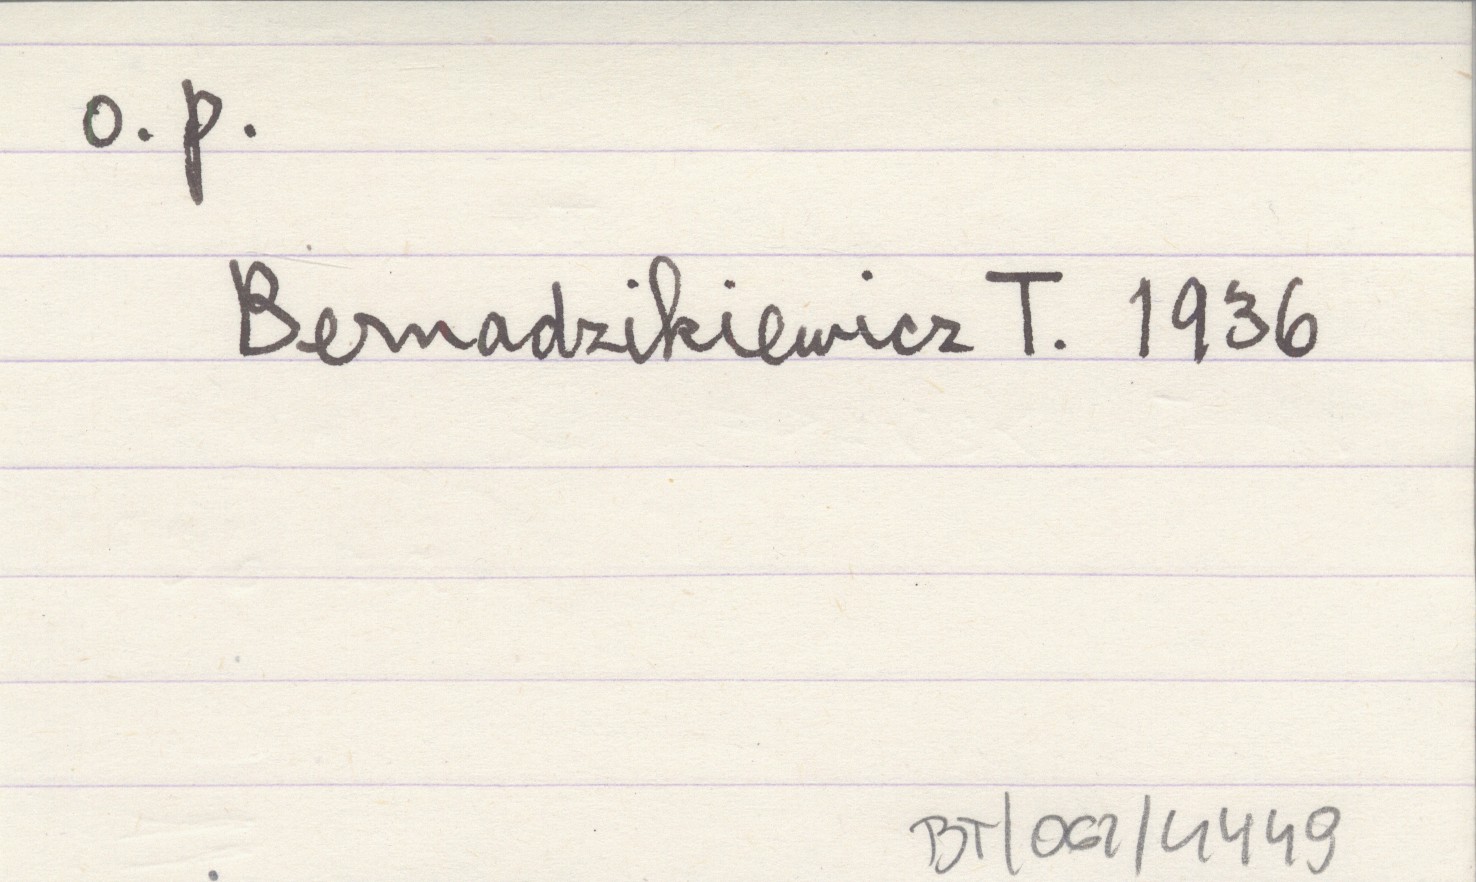 o. p.
Bernadzikiewicz T. 1936
BT/OG2/4449